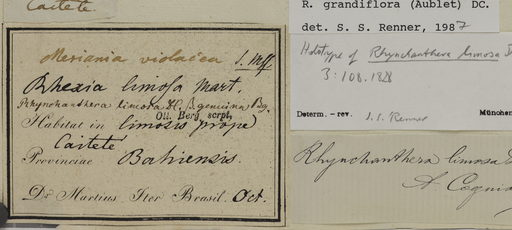 Caitete
R. grandiflora (Aublet) DC.
det. S. S. Renner, 1987
Meriania violacea
Rhexia limosa Mart.
Rhynchanthera limosa β genuina Bg.
Ott. Berg. scrpt.
Habitat in limosis prope
Caitete
Provinciae Bahiensis.
Dr. Martius Iter Brasil. Oct.
Holotype of Rhynchanthera limosa
3:108.1828
Determ. – rev. S. S. Renner München
Rhynchanthera limosa
A. Cogniaux